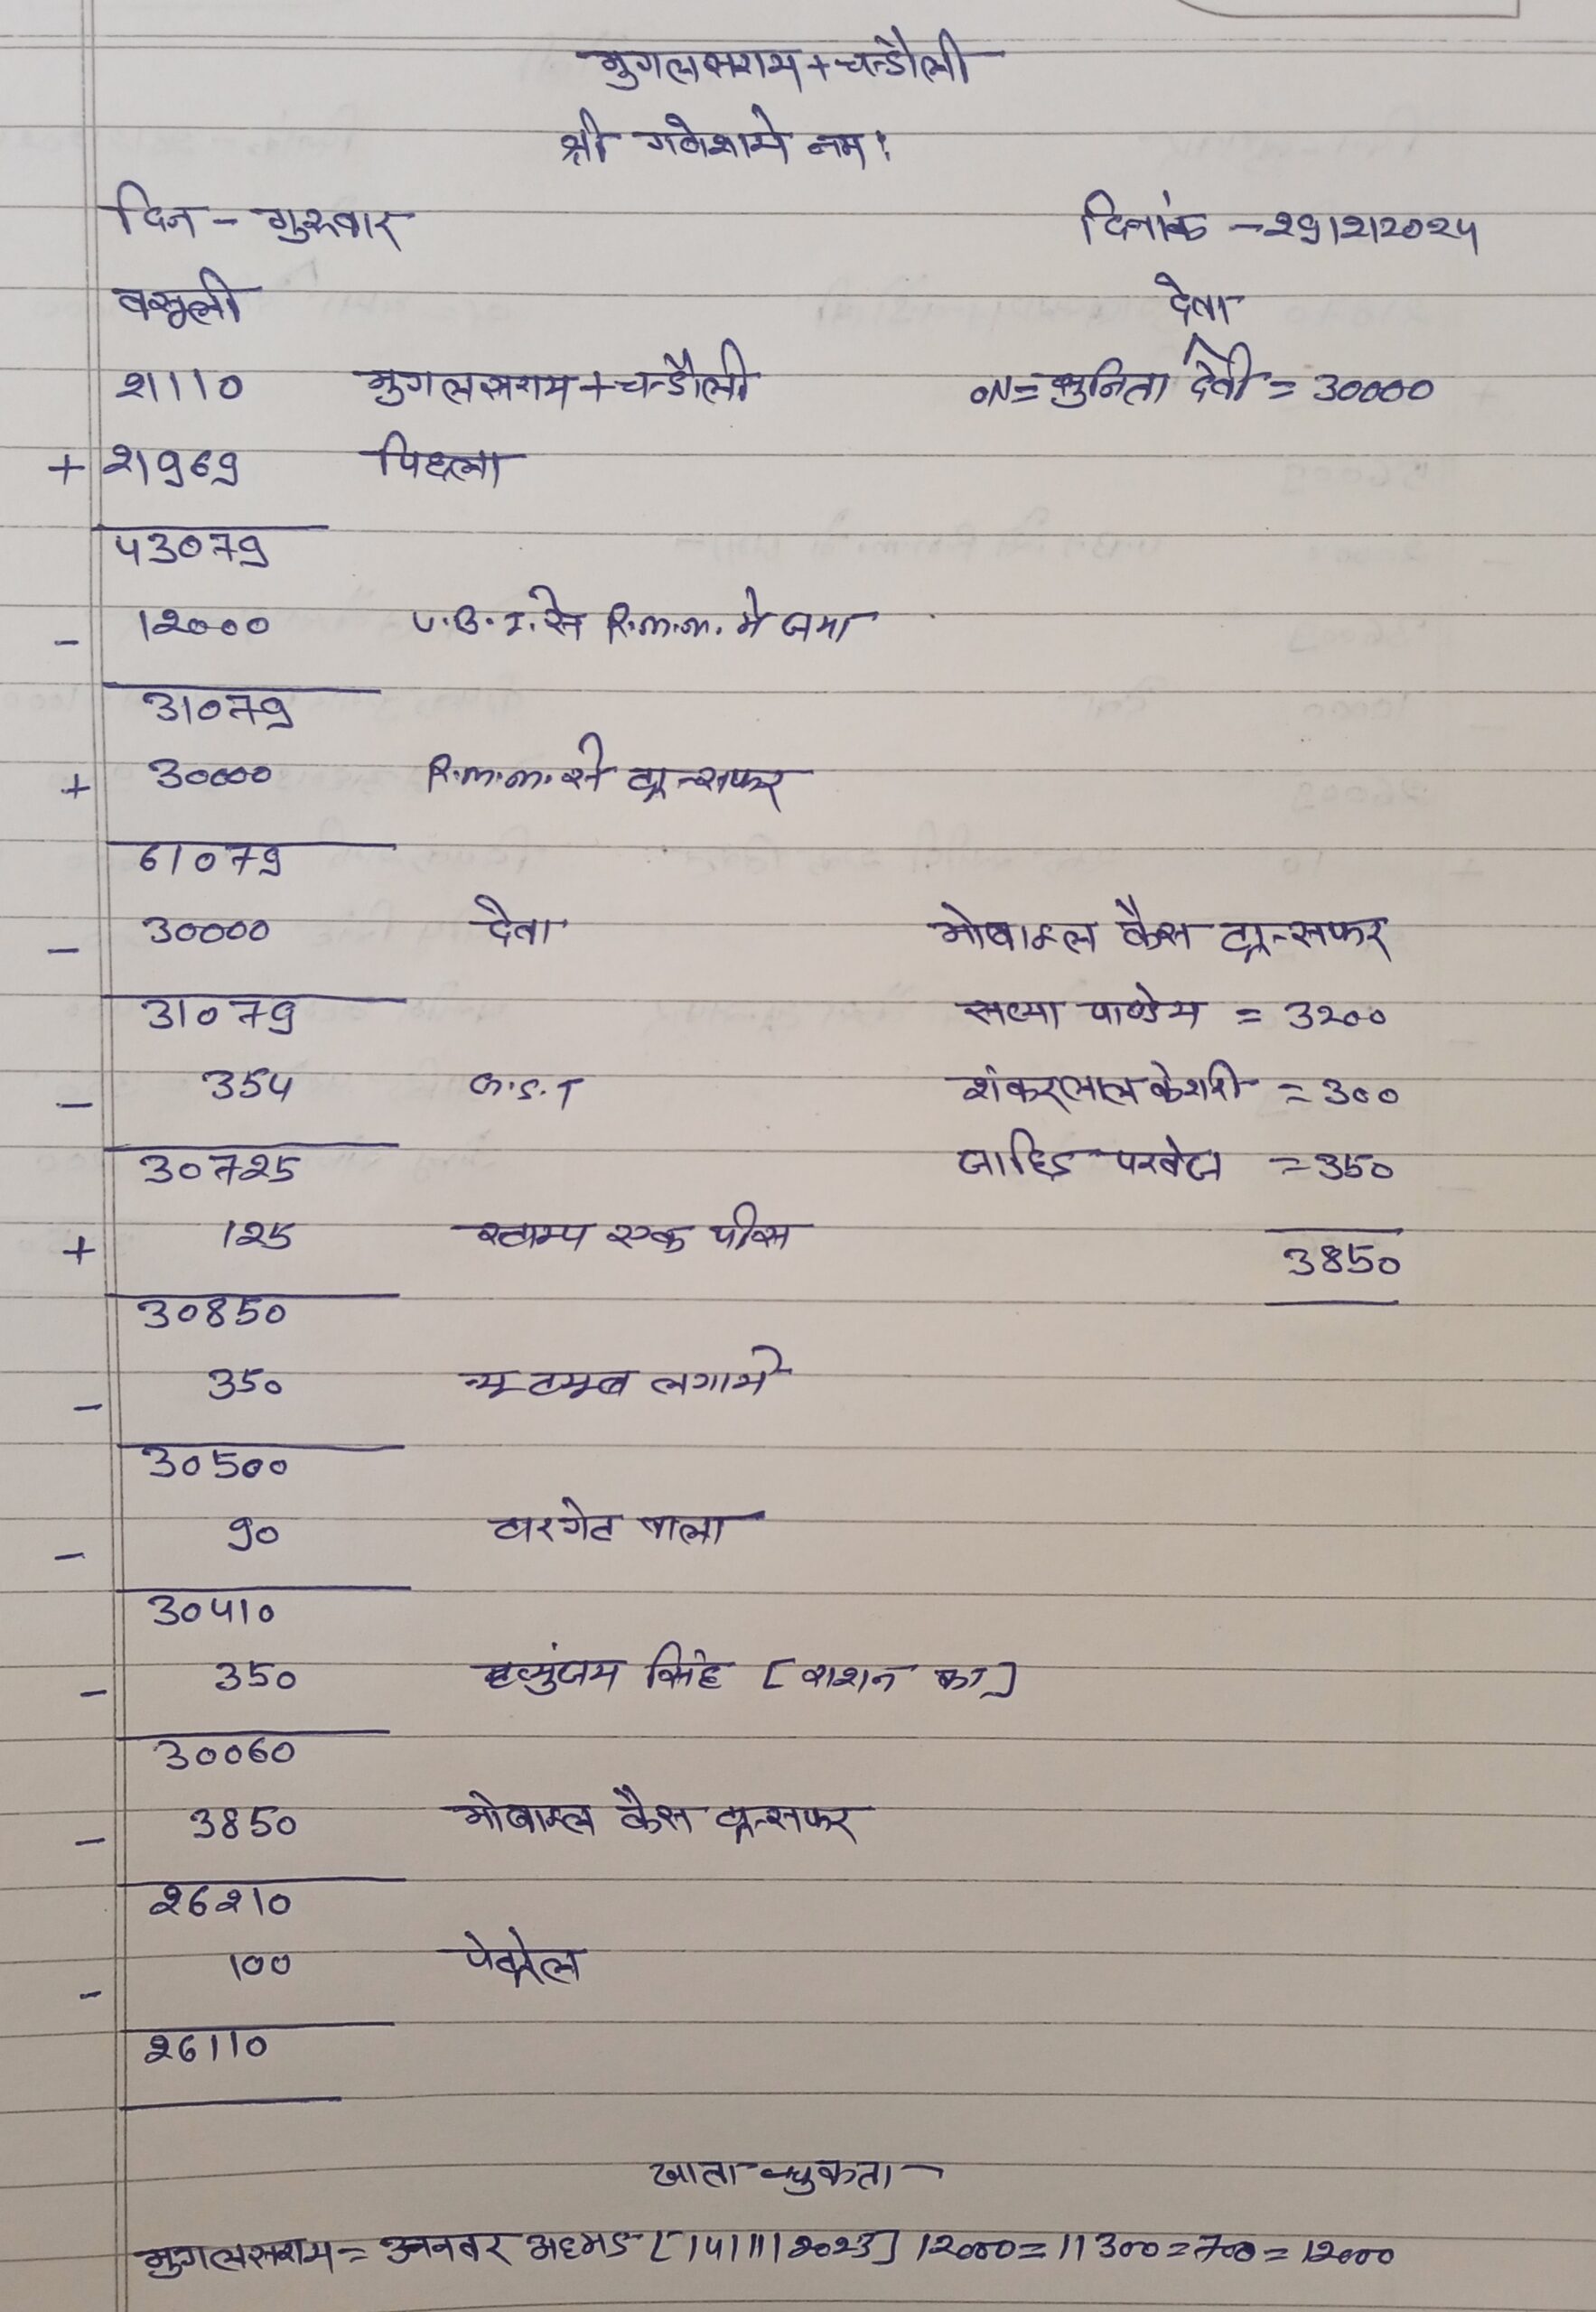 मुगलसराय + चन्डौली
श्री गणेशाये नमः
दिन - गुरुवार
दिनांक - 29/2/2024
वसूली
देना
21110 मुगलसराय + चन्डौली
ON = सुनिता देवी = 30000
+ 21969 पिछला
43079
- 12000 U.B.I. से R.m.m. मे जमा
31079
+ 30000 R.m.m. से ट्रान्सफर
61079
- 30000 देना
मोबाइल कैस ट्रान्सफर
31079
सत्या पाण्डेय = 3200
- 354 G.S.T
शंकरलाल केशरी = 300
30725
जाहिड परवेज = 350
+ 125 स्टाम्प एक पीस
3850
30850
- 350 न्यू ट्यूब लगाये
30500
- 90 टारगेट वाला
30410
- 350 मृत्युंजय सिंह [राशन का]
30060
- 3850 मोबाइल कैस ट्रान्सफर
26210
- 100 पेट्रोल
26110
खाता चुकता -
मुगलसराय = अनवर अहमड [14/11/2023] 12000 = 11300 = 700 = 12000